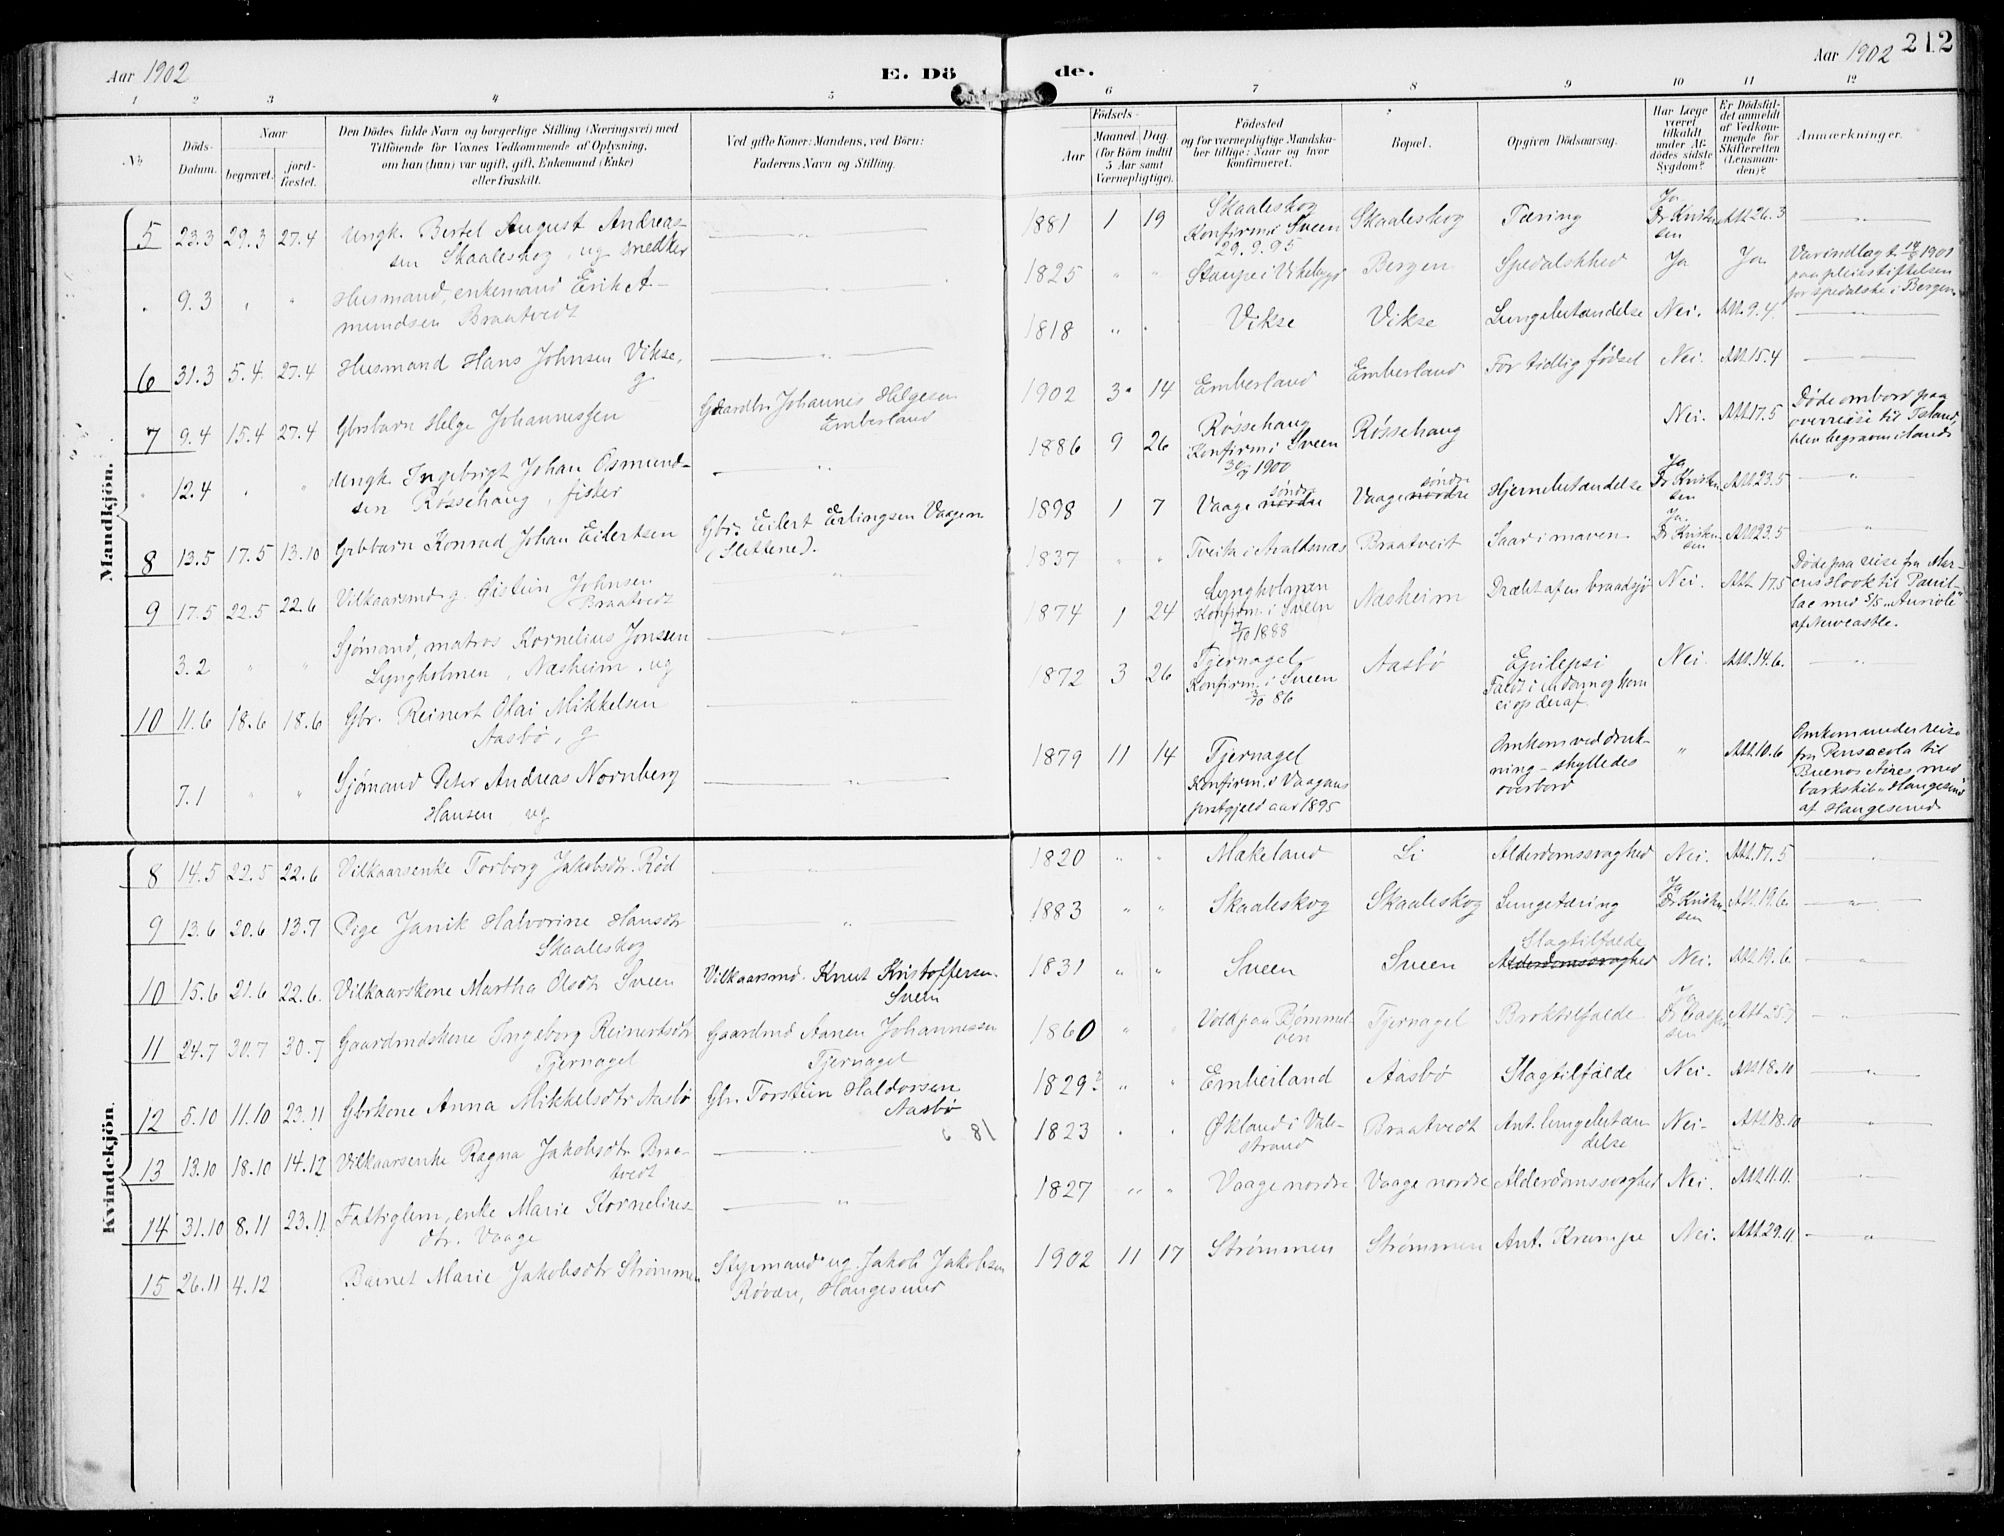 Aar 1902
E. Dö
de.
Aar 1902
212
1 2 3 4 5 6 7 8 9 10 11 12
No
Döds-
Datum.
Naar
begravet.
jord-
fæstet.
Den Dödes fulde Navn og borgerlige Stilling (Næringsvei) med
Tilföiende for Voxnes Vedkommende af Oplysning,
om han (hun) var ugift, gift, Enkemand (Enke)
eller fraskilt.
Ved gifte Koner: Mandens, ved Börn:
Faderens Navn og Stilling.
Födsels-
Aar
Maaned Dag.
(for Börn indtil
5 Aar samt
Værnepligtige).
Födested
og for værnepligtige Mandska-
ber tillige: Naar og hvor
konfirmeret.
Bopæl.
Opgiven Dödsaarsag.
Har Læge
været
tilkaldt
under Af-
dödes sidste
Sygdom?
Er Dödsfal-
det anmeldt
af Vedkom-
mende for
Skifteretten
(Lensman-
den)?
Anmærkninger.
Mandkjön.
5 23.3 29.3 27.4 Ungk. Bertel August Andreas-
sen Skaaleskog, ug snedker
1881 1 19 Skaaleskog
Konfirm i Sveen
29.9.95
Skaaleskog Tæring Ja
Dr Kristen-
sen
Att 26.3
9.3 " " Husmand, enkemand Erik A-
mundsen Braatvedt
1825 " " Staupe i Vikebygd Bergen Spedalskhed Ja Ja
Var indlagt 1901
paa pleiestiftelsen
for spedalske i Bergen
6 31.3 5.4 27.4 Husmand Hans Johnsen Vikse,
g
1818 " " Vikse Vikse Lungebetændelse Nei. Att. 9.4
7 9.4 15.4 27.4 Gbrbarn Helge Johannessen
Gaardbr. Johannes Helgesen
Emberland
1902 3 14 Emberland Emberland For tidlig fødsel Nei. Att. 15.4
12.4 " " Ungk. Ingebrigt Johan Osmund-
sen Røssehaug, fisker
1886 9 26 Røssehaug
Konfirm i Sveen
30/9 1900
Røssehaug Nei. Att 17.5
Døde ombord paa
overreise til Island,
blev begravn island
8 13.5 17.5 13.10 Gbrbarn Konrad Johan Eilertsen
Gbr. Eilert Erlingsen Vaagen
(Slettene).
1898 1 7 Vaage nordre søndre Vaage nordre søndre Hjernebetændelse Ja
Dr Kristen-
sen
Att 23.5
9 17.5 22.5 22.6 Vilkaarsmd. g. Øistein Johnsen
Braatvedt
1837 " " Tveita i Avaldsnæs Braatveit Saar i maven Ja
Dr Kristen-
sen
Att 23.5
3.2 " " Sjømand, matros Kornelius Jonssen
Lyngholmen, Næsheim, ug
1874 1 24 Lyngholmen
Konfirm. i Sveen
7/10 1888
Næsheim Dræbt af en braadsjø Nei. Att 17.5
Døde paa reise fra
til
lac med S/S "Auriole"
af Newcastle.
10 11.6 18.6 18.6 Gbr. Reinert Olai Mikkelsen
Aasbø, g
1872 3 26 Tjernagel
Konfirm. i Sveen
3/10 86
Aasbø Epilepsi
Faldt i en dam og kom
ei op deraf.
Nei. Att. 14.6.
7.1 " " Sjømand Peter Andreas Nornberg
Hansen, ug
1879 11 14 Tjernagel
Konfirm. i Vaagans
prstgjeld aar 1895
Omkom ved druk-
ning - skylledes
overbord
" Att. 10.6
Omkom under reise
fra Pensacola til
Buenos Aires, med
barkskib "Haugesund"
af Haugesund
Kvindekjön.
8 14.5 22.5 22.6 Vilkaarsenke Torborg Jakobsdtr. Rød
1820 " " Mækeland Li Alderdomssvaghed Nei. Att. 17.5
9 13.6 20.6 13.7 Pige Janik Halvorine Hansdtr
Skaaleskog
1883 " " Skaaleskog Skaaleskog Lungetæring Ja
Dr Kristen-
sen
Att 19.6
10 15.6 21.6 22.6. Vilkaarskone Martha Olsdtr Sveen
Vilkaarsmd. Knut Kristoffersen
Sveen
1831 " " Sveen Sveen Slagtilfælde
Alderdomssvaghed
Nei. Att 19.6
11 24.7 30.7 30.7 Gaardmdskone Ingeborg Reinertsdtr
Tjernagel
Gaardmd Aanen Johannessen
Tjernagel
1860 " " Vold paa Bømmel-
øen
Tjernagel Broktilfælde Ja
Dr Casper-
sen
Att 25.7
12 5.10 11.10 23.11 Gbrkone Anna Mikkelsdtr Aasbø
Gbr. Torstein Haldorsen
Aasbø
1829 " " Emberland Aasbø Slagtilfælde Nei. Att 18.10
6 81
13 13.10 18.10 14.12 Vilkaarsenke Ragna Jakobsdtr Braa-
tvedt
1823 " " Økland i Vale-
strand
Braatvedt Ant. lungebetæn-
delse
Nei- Att. 18.10
14 31.10 8.11 23.11 Fattiglem, enke Marie Kornelius-
dtr. Vaage
1827 " " Vaage nordre Vaage nordre Alderdomssvaghed Nei. Att. 11.11.
15 26.11 4.12 Barnet Marie Jakobsdtr Strømmen
Styrmand ug. Jakob Jakobsen
Røvær, Haugesund
1902 11 17 Strømmen Strømmen Ant. Krampe Nei. Att. 29.11